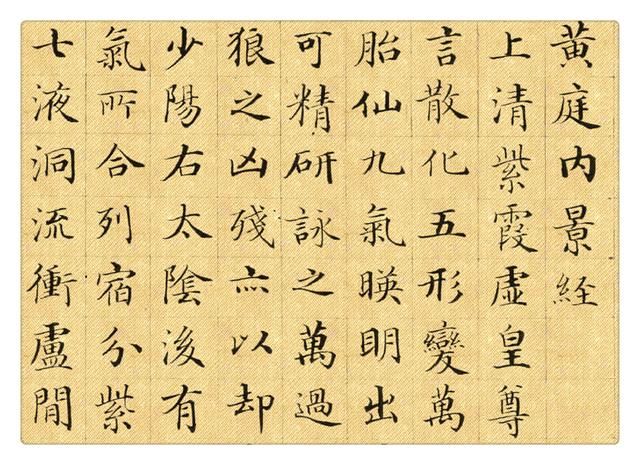 黄庭内景経
上清紫霞虚皇尊
言散化五形變萬
胎仙九氣暎明出
可精研詠之萬過
狼之凶殘亦以却
少陽右太陰後有
氣所合列宿分紫
七液洞流衝盧閒